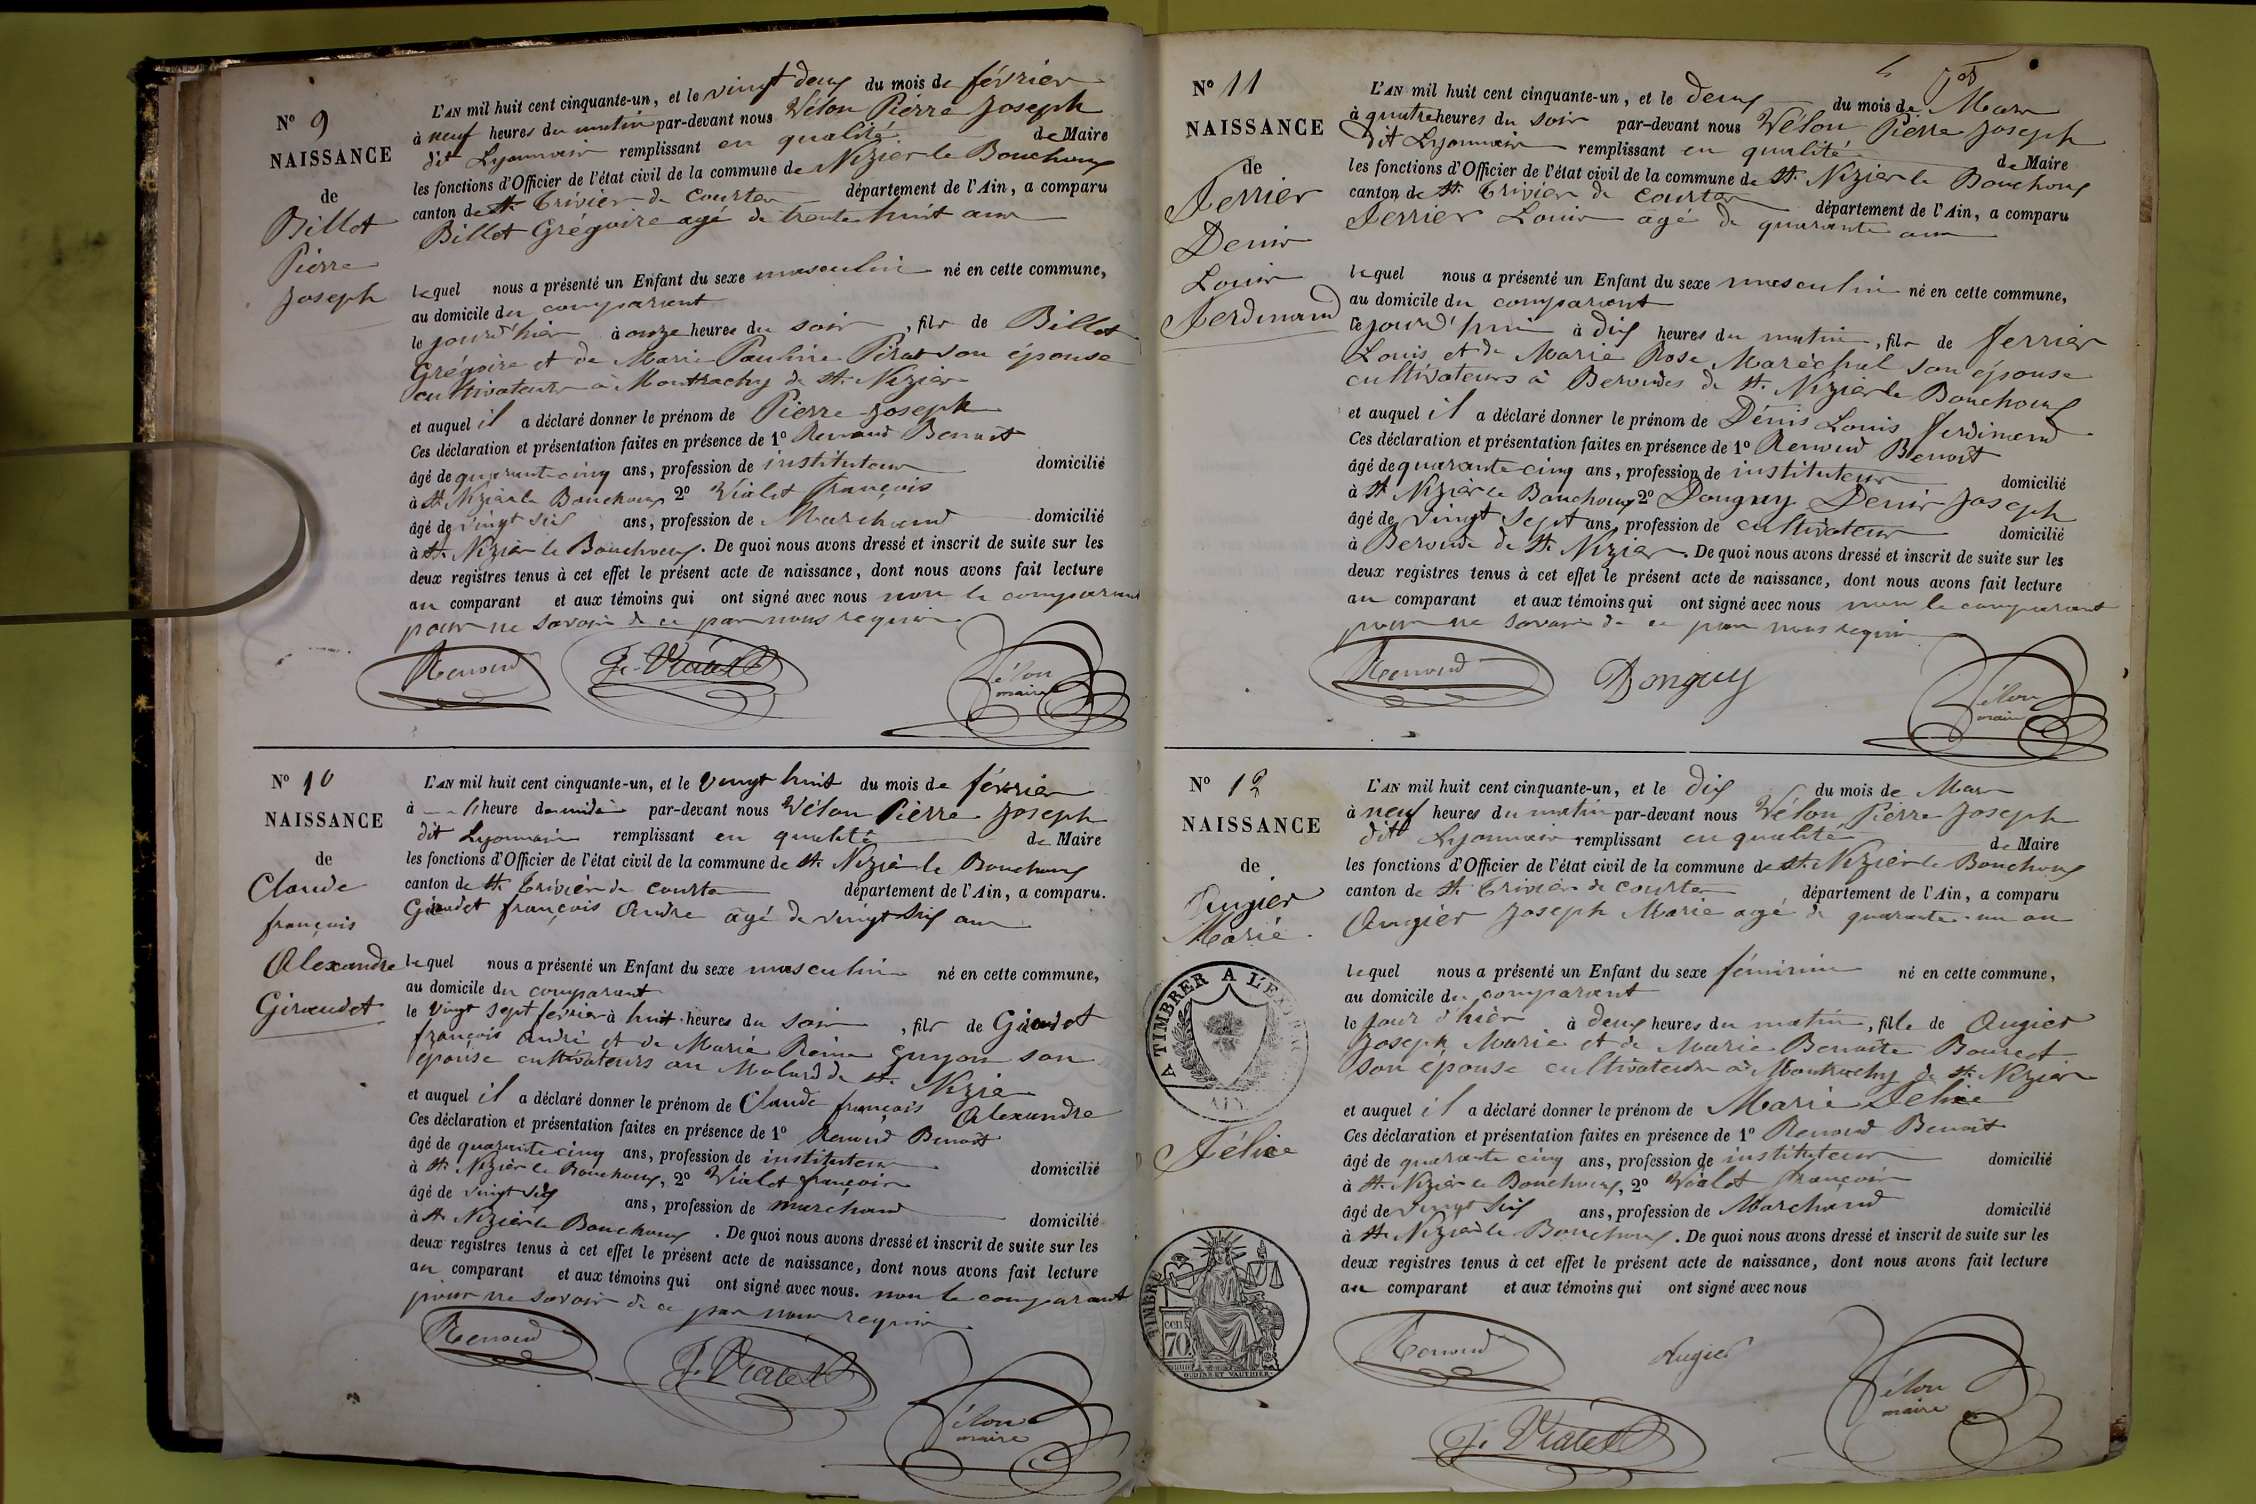 N° 9
NAISSANCE
de
Billot
Pierre
Joseph
L'AN mil huit cent cinquante-un, et le vingt deux du mois de février
à neuf heures du matin par-devant nous Vélon Pierre Joseph
dit Lyonnais remplissant en qualité de Maire
les fonctions d'Officier de l'état civil de la commune de Nizier le Bouchoux
canton de St. Trivier de Courtes département de l'Ain, a comparu
Billet Grégoire agé de trente huit ans
lequel nous a présenté un Enfant du sexe masculin né en cette commune,
au domicile du comparant
le jour d'hier à onze heures du soir, fils de Billot
Grégoire et de Marie Pauline Pirat son épouse
cultivateurs à Montrachy de St. Nizier
et auquel il a déclaré donner le prénom de Pierre Joseph
Ces déclaration et présentation faites en présence de 1° Renoud Benoit
âgé de quarante cinq ans, profession de instituteur domicilié
à St. Nizier le Bouchoux 2° Vialet François
âgé de vingt six ans, profession de Marchand domicilié
à St. Nizier le Bouchoux. De quoi nous avons dressé et inscrit de suite sur les
deux registres tenus à cet effet le présent acte de naissance, dont nous avons fait lecture
au comparant et aux témoins qui ont signé avec nous non le comparant
pour ne savoir de ce par nous requis
Renoud F. Vialet Vélon
maire
N° 10
NAISSANCE
de
Claude
françois
Alexandre
Giraudet
L'AN mil huit cent cinquante-un, et le vingt huit du mois de février
à heure de midi par-devant nous Vélon Pierre Joseph
dit Lyonnais remplissant en qualité de Maire
les fonctions d'Officier de l'état civil de la commune de St. Nizier le Bouchoux
canton de St. Trivier de Courtes département de l'Ain, a comparu.
françois andré âgé de vingt six ans
lequel nous a présenté un Enfant du sexe masculin né en cette commune,
au domicile du comparant
le vingt sept février à huit heures du soir, fils de
françois andré et de Marie Reine Guyon son
épouse cultivateurs au Molard de St. Nizier
et auquel il a déclaré donner le prénom de Claude françois Alexandre
Ces déclaration et présentation faites en présence de 1° Renoud Benoit
âgé de quarante cinq ans, profession de instituteur domicilié
à St. Nizier le Bouchoux, 2° Vialet françois
âgé de vingt six ans, profession de marchand domicilié
à St Nizier le Bouchoux. De quoi nous avons dressé et inscrit de suite sur les
deux registres tenus à cet effet le présent acte de naissance, dont nous avons fait lecture
au comparant et aux témoins qui ont signé avec nous. non le comparant
pour ne savoir de ce par nous requis
Renoud F. Vialet Vélon
maire
N° 11
NAISSANCE
de
Ferrier
Denis
Louis
Ferdinand
L'AN mil huit cent cinquante-un, et le deux du mois de Mars
à quatre heures du soir par-devant nous Vélon Pierre Joseph
dit Lyonnais remplissant en qualité de Maire
les fonctions d'Officier de l'état civil de la commune de St. Nizier le Bouchoux
canton de St. Trivier de Courtes département de l'Ain, a comparu
Ferrier Louis agé de quarante ans
lequel nous a présenté un Enfant du sexe masculin né en cette commune,
au domicile du comparant
ce jourd'hui à dix heures du matin, fils de Ferrier
Louis et de Marie Rose Maréchal son épouse
cultivateurs à Beroudes de St. Nizier le Bouchoux
et auquel il a déclaré donner le prénom de Dénis Louis Ferdinand
Ces déclaration et présentation faites en présence de 1° Renoud Benoit
âgé de quarante cinq ans, profession de instituteur domicilié
à St Nizier le Bouchoux 2° Donguy Denis Joseph
âgé de vingt sept ans, profession de cultivateur domicilié
à Beroude de St. Nizier. De quoi nous avons dressé et inscrit de suite sur les
deux registres tenus à cet effet le présent acte de naissance, dont nous avons fait lecture
au comparant et aux témoins qui ont signé avec nous non le comparant
pour ne savoir de ce par nous requis
Renoud Donguy Vélon
maire
N° 12
NAISSANCE
de
Augier
Marie
A TIMBRER A L'EX
AIN
Félice
TIMBRE
cen.
70
L'AN mil huit cent cinquante-un, et le dix du mois de Mars
à neuf heures du matin par-devant nous Vélon Pierre Joseph
dit Lyonnais remplissant en qualité de Maire
les fonctions d'Officier de l'état civil de la commune de St. Nizier le Bouchoux
canton de St. Trivier de Courtes département de l'Ain, a comparu
Augier Joseph Marie agé de quarante un an
lequel nous a présenté un Enfant du sexe féminin né en cette commune,
au domicile du comparant
le jour d'hier à deux heures du matin, fille de Augier
Joseph Marie et de Marie Benoite Bourcet
son épouse cultivateurs à Montrachy de St. Nizier
et auquel il a déclaré donner le prénom de Marie Felice
Ces déclaration et présentation faites en présence de 1° Renoud Benoit
âgé de quarante cinq ans, profession de instituteur domicilié
à St. Nizier le Bouchoux, 2° Vialet François
âgé de vingt six ans, profession de Marchand domicilié
à St. Nizier le Bouchoux. De quoi nous avons dressé et inscrit de suite sur les
deux registres tenus à cet effet le présent acte de naissance, dont nous avons fait lecture
au comparant et aux témoins qui ont signé avec nous
Renoud Augier Vélon
maire
F. Vialet